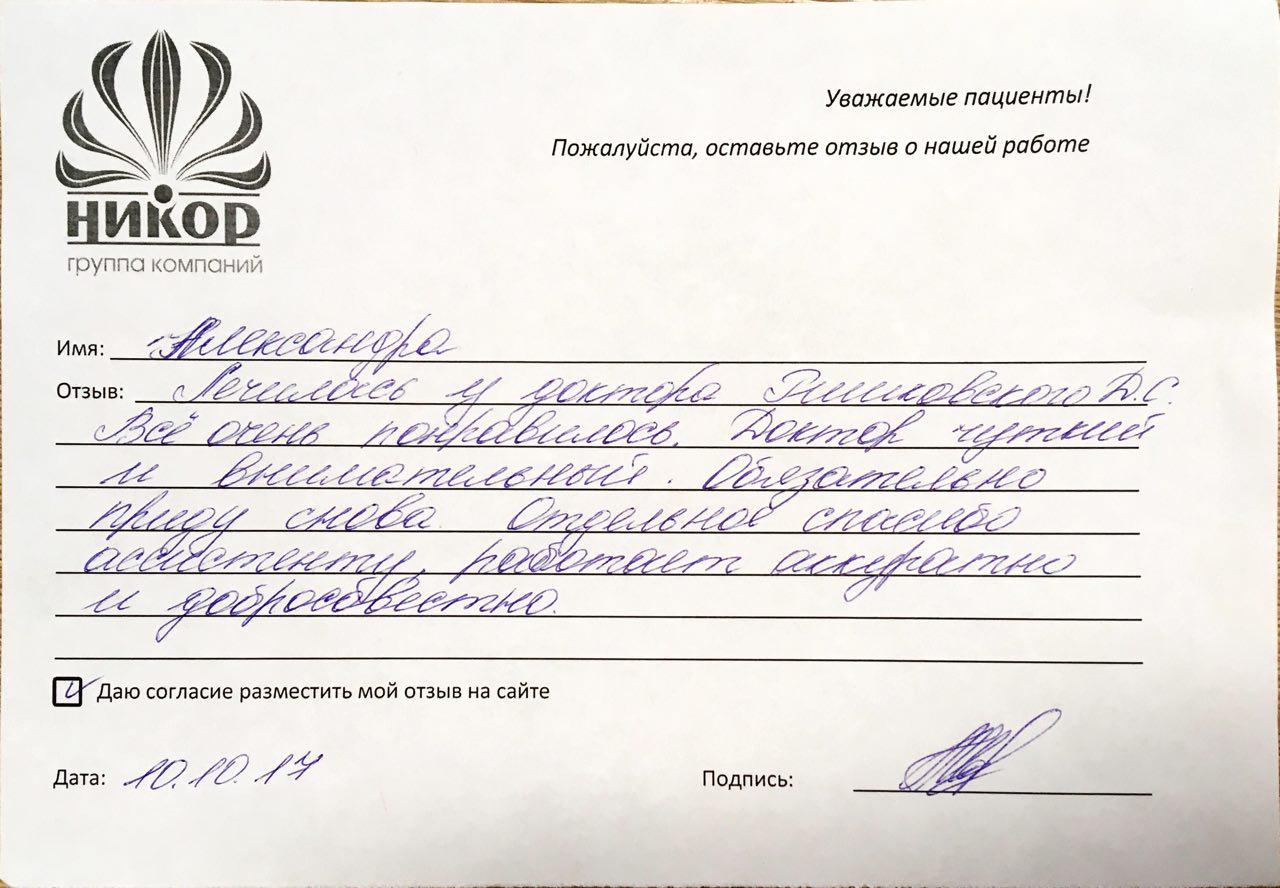 никор
группа компаний
Уважаемые пациенты!
Пожалуйста, оставьте отзыв о нашей работе
Имя: Александра
Отзыв: Лечилась у доктора Д.С.
Всё очень понравилось. Доктор чуткий
и внимательный. Обязательно
приду снова Отдельное спасибо
ассистенту, работает аккуратно
и добросовестно.
Даю согласие разместить мой отзыв на сайте
Дата: 10.10.17
Подпись: